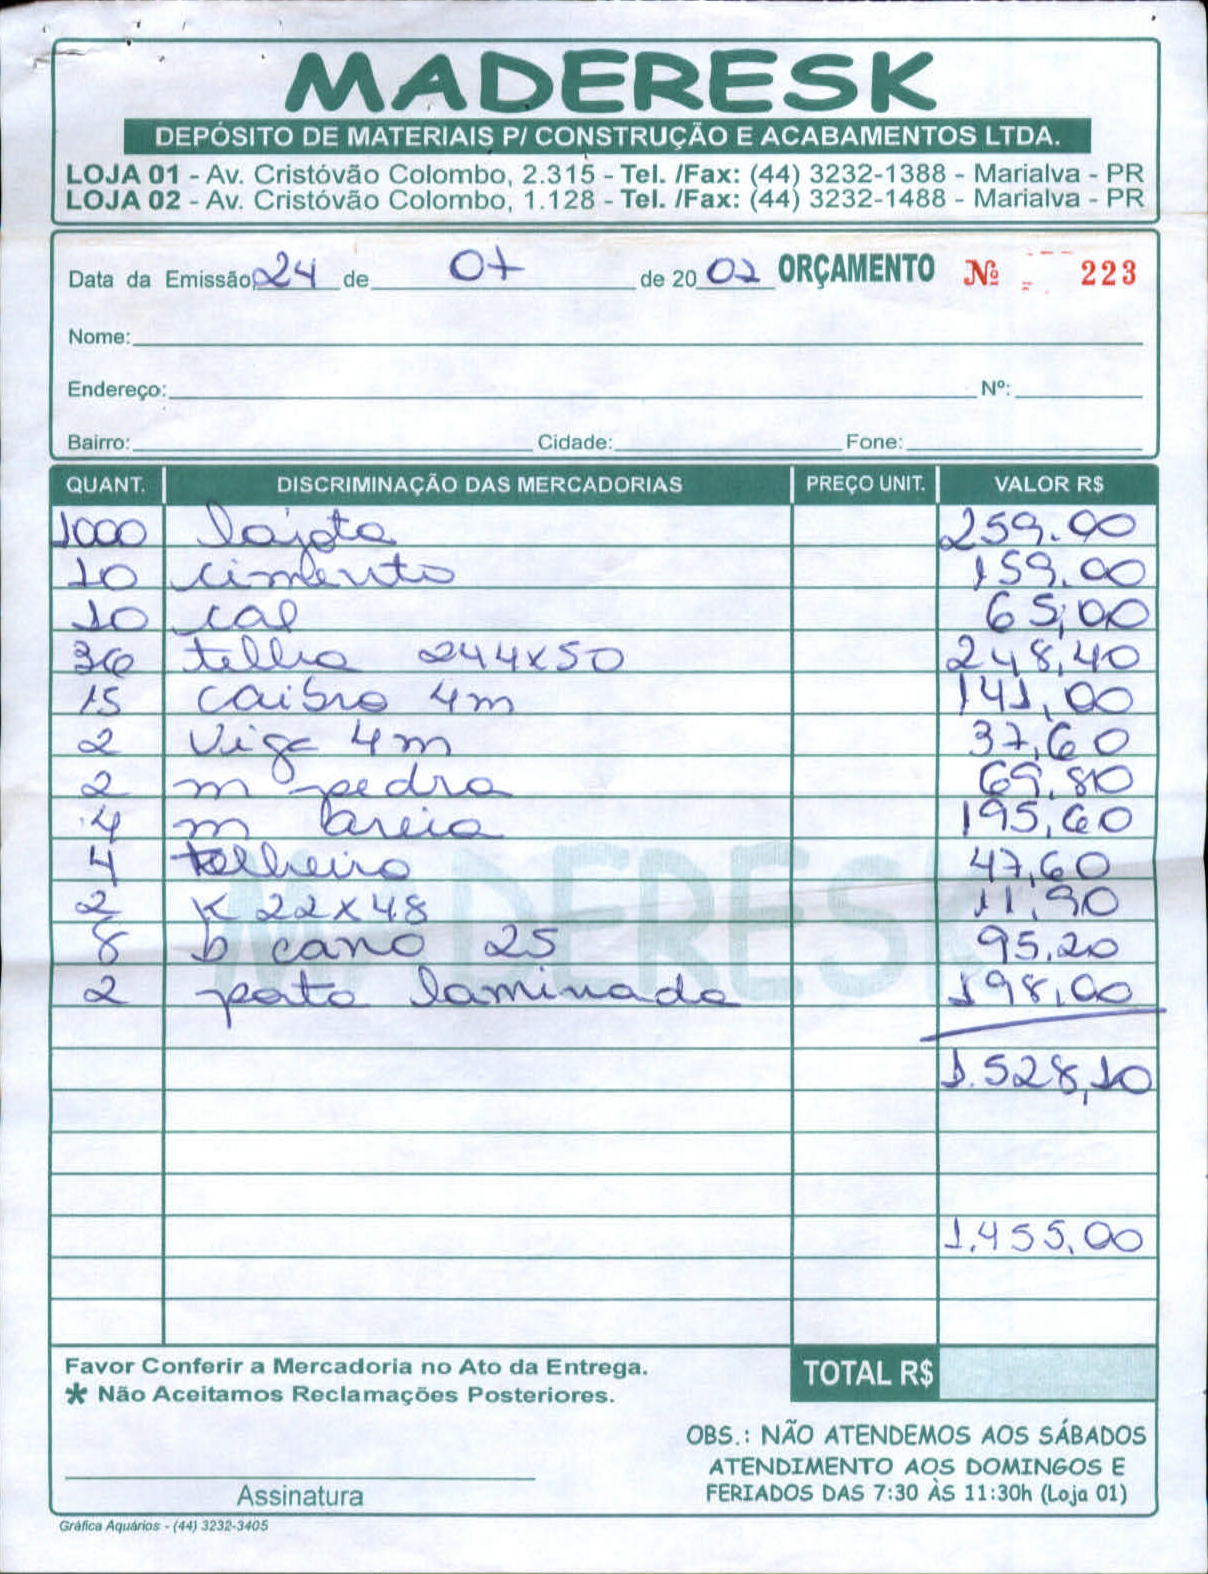 MADERESK
DEPÓSITO DE MATERIAIS P/ CONSTRUÇÃO E ACABAMENTOS LTDA.
LOJA 01 - Av. Cristóvão Colombo, 2.315 - Tel. /Fax: (44) 3232-1388 - Marialva - PR
LOJA 02 - Av. Cristóvão Colombo, 1.128 - Tel. /Fax: (44) 3232-1488 - Marialva - PR
Data da Emissão 24 de 07 de 20 02 ORÇAMENTO Nº 223
Nome:
Endereço: Nº:
Bairro: Cidade: Fone:
QUANT. DISCRIMINAÇÃO DAS MERCADORIAS PREÇO UNIT. VALOR R$
1000 lajota 259.00
10 cimento 159,00
10 cal 65,00
36 telha 244x50 248,40
15 caibro 4m 141,00
2 viga 4m 37,60
2 m pedra 69,80
4 m areia 195,60
4 telheiro 47,60
2 K 22x48 11,90
8 b cano 25 95,20
2 porta laminada 198,00
1.528,10
1.455,00
Favor Conferir a Mercadoria no Ato da Entrega. TOTAL R$
* Não Aceitamos Reclamações Posteriores.
OBS.: NÃO ATENDEMOS AOS SÁBADOS
ATENDIMENTO AOS DOMINGOS E
FERIADOS DAS 7:30 ÀS 11:30h (Loja 01)
Assinatura
Gráfica Aquários - (44) 3232-3405
MADERESK